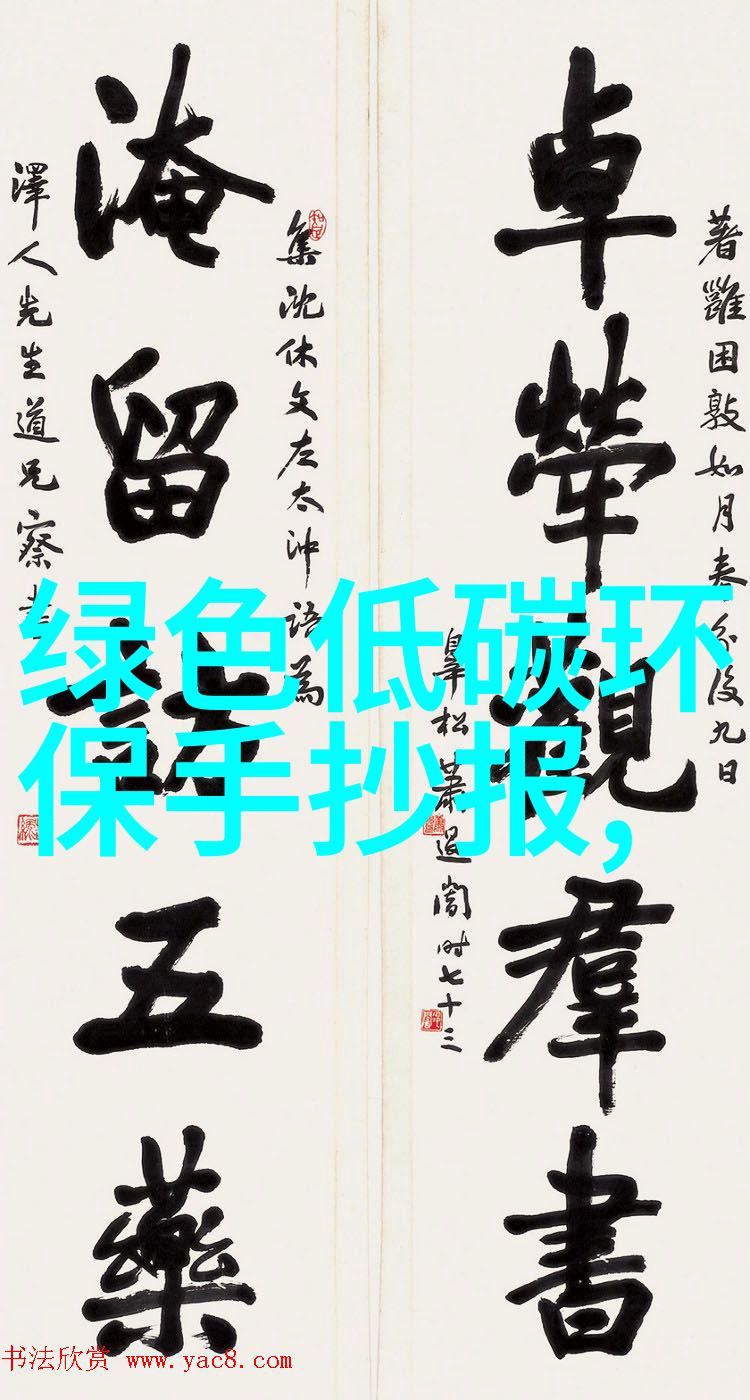 著雝困敦如月春分後九日
卓犖觀羣書
皋松蕭退闇时七十三
集沈休文左太沖語為
淹留訪五藥
澤人先生道兄察
绿色低碳环
保手抄报,
书法欣赏 www.yac8.com